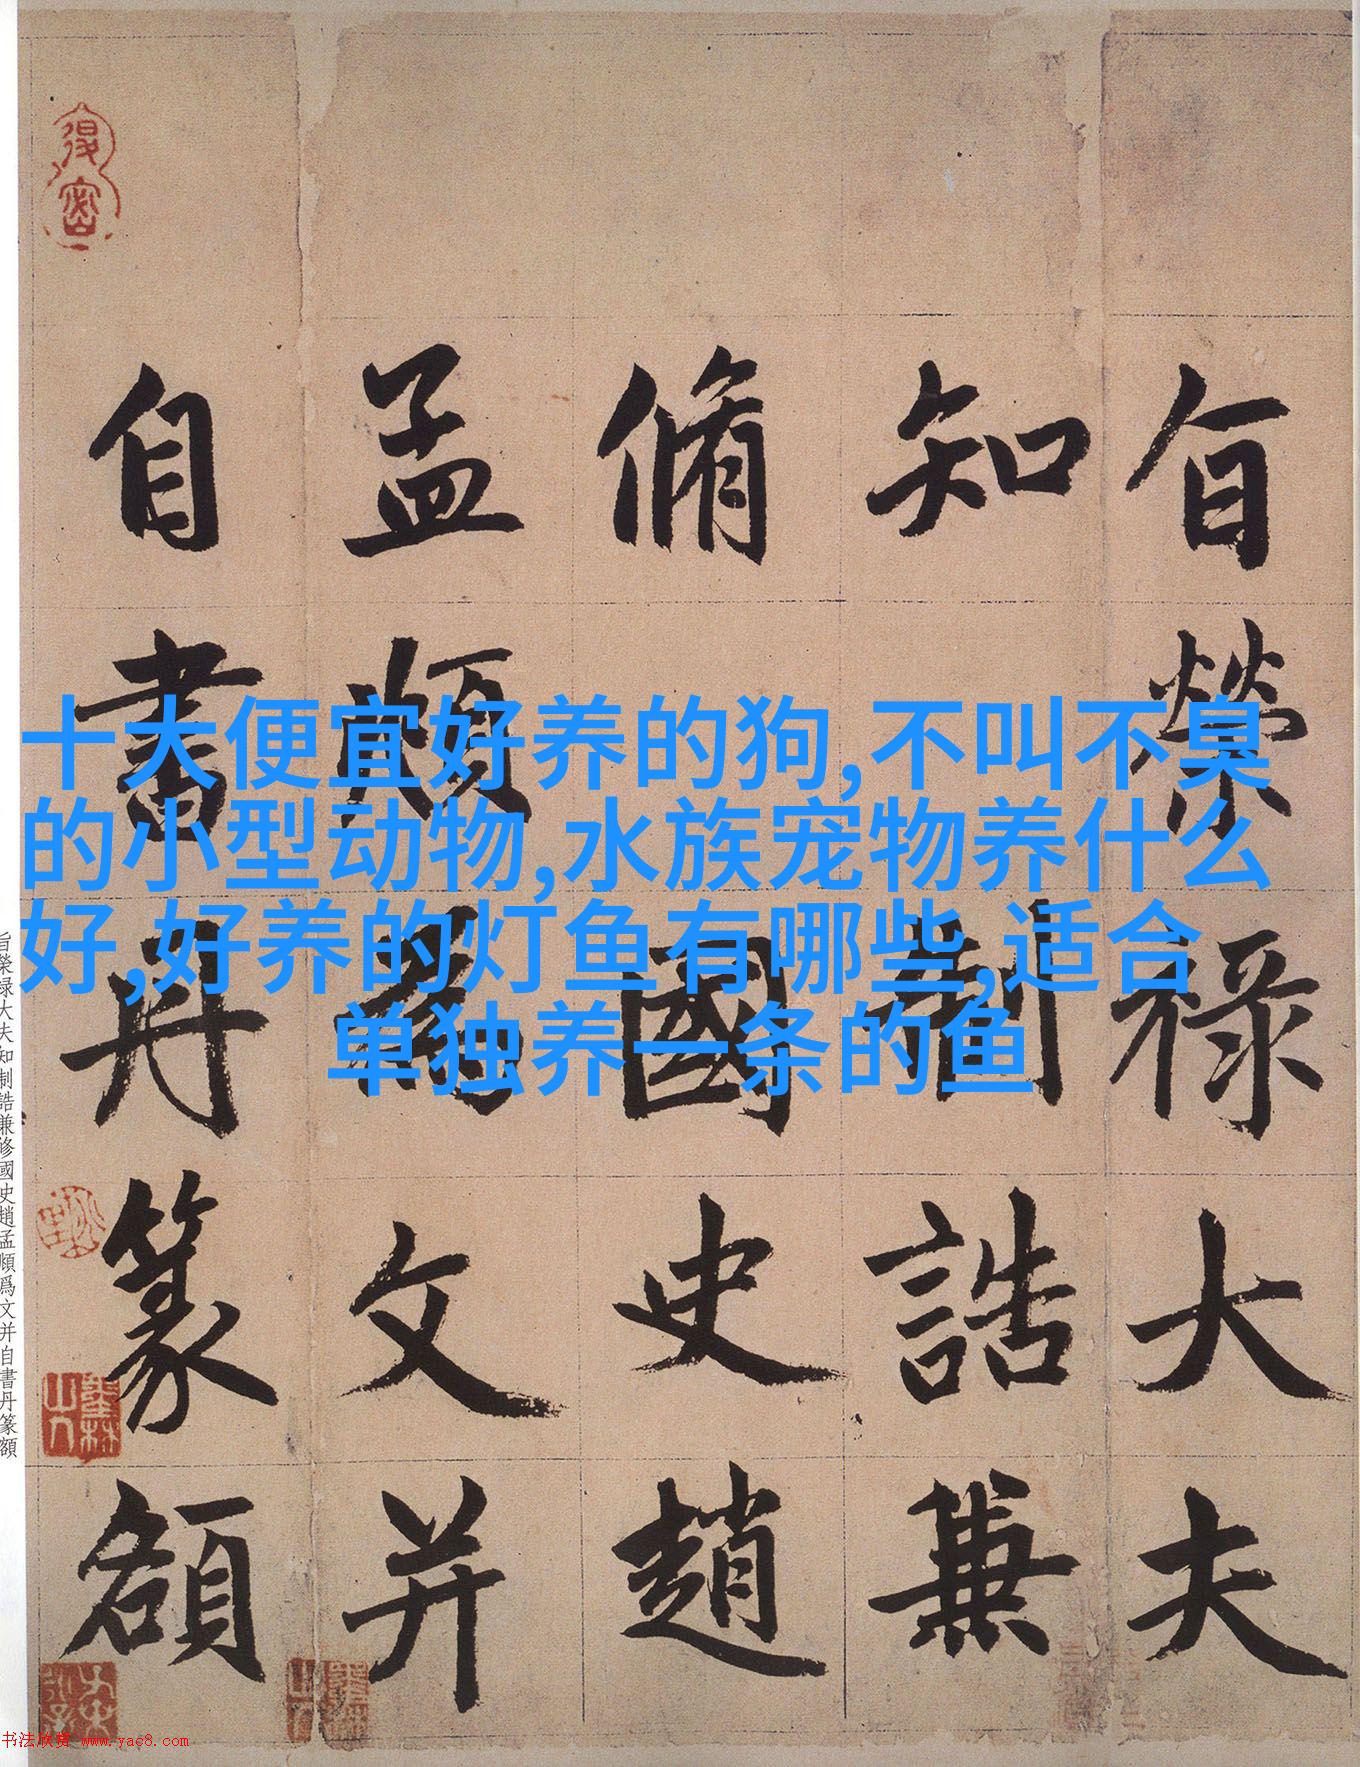 旨榮禄大夫
知制誥兼
脩國史趙
孟頫爲文并
自書丹篆額
十大便宜好养的狗,不叫不臭
的小型动物,水族宠物养什么
好,好养的灯鱼有哪些,适合
单独养一条的鱼
旨榮禄大夫知制誥兼修國史趙孟頫爲文并自書丹篆額
书法欣赏 www.yac8.com